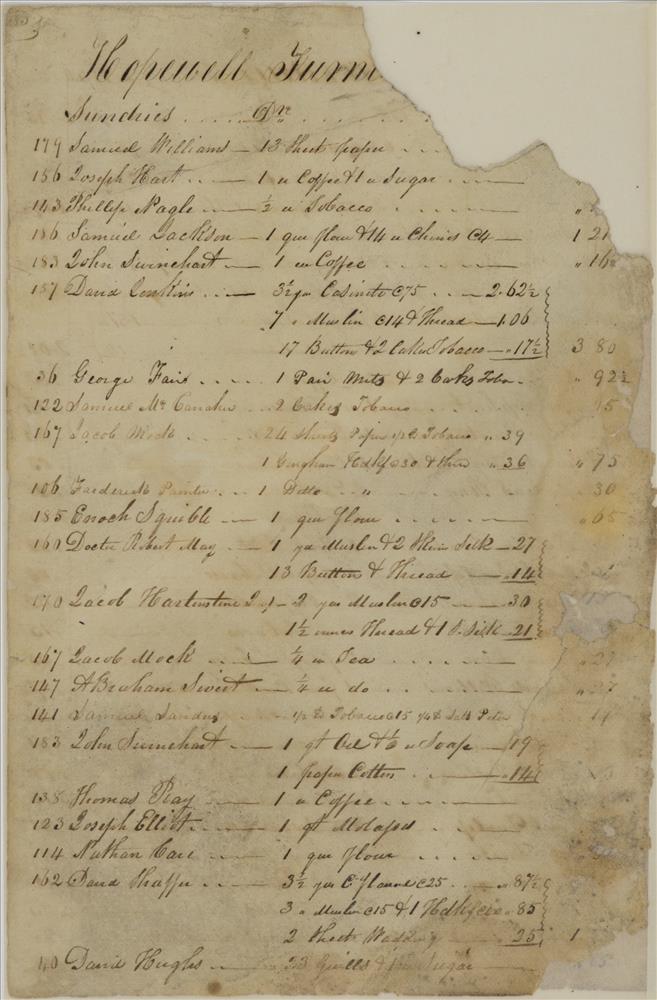 Hopewell Furn
Sundries Dr
179 Samuel Williams 13 Sheet paper
186 Joseph Hart 1 " Coffee & 1 " Sugar "
143 Phillip Nagle ½ " Tobacco "
186 Samuel Jackson 1 qur flour & 14 " Chinis @4 1 21
183 John Surnehart 1 " Coffee " 16
187 David Jenkins 3½ yds Casinett @75 2.62½
7 " Muslin @14 & Thread 1.06
17 Button & 2 Cakes Tobacco " 17½ 3 80
36 George Fair 1 Pair Mits & 2 Cakes Toba " 92½
122 Samuel Mc 2 Cakes Tobacco 15
167 Jacob Mock 24 Sheets Paper ½ lb Tobacco " 39
1 Gingham Hdkf @30 & thre " 36 " 75
106 Frederick Painter 1 Ditto " " 30
185 Enoch Squible 1 qur flour " 65
160 Doctr Robert May 1 yd Muslin & 2 Skein Silk 27
13 Button & Thread " 14
170 Jacob Hartenstine 2 yds Muslin @15 30
1½ ounces Thread & 1 S. Silk 21
167 Jacob Mock ¼ " Tea " 27
147 ABraham Swert ¼ " do " 27
141 Samuel Landus ½ lb Tobacco @15 ¼ lb Salt Peter 19
183 John Surnehart 1 qt Oil & ½ " Soap 19
1 paper Cotton " 14
138 Thomas Ray 1 " Coffee
123 Joseph Elliot 1 qt Molases
114 Nathan Care 1 qur flour
162 David Shaffer 3½ yds C flannel @25 " 87½
3 " Muslin @15 & 1 Hdkf " 85
2 Sheet Wadding 25 1
40 David Hughs 23 Quills & Sugar